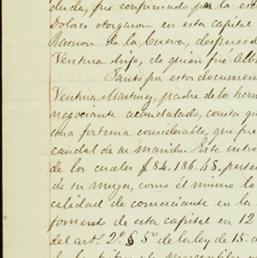 duda, fué confirmado por la es
Dolores otorgaron en esta capital
Ramon de la Cueva, despues de
Ventura dijo, de quien fué Alb
Tanto pa estos documen
Ventura Martinez, padre de los her
negociante acaudalado, consta q
una fortuna considerable, que pre
caudal de su marido. Este intro
de los cuales $84.186.48. perte
de su muger, como él mismo lo
calidad de comerciante en la
fomento de esta capital en 12
del art.º 2.º § 5º de la ley de 15. d